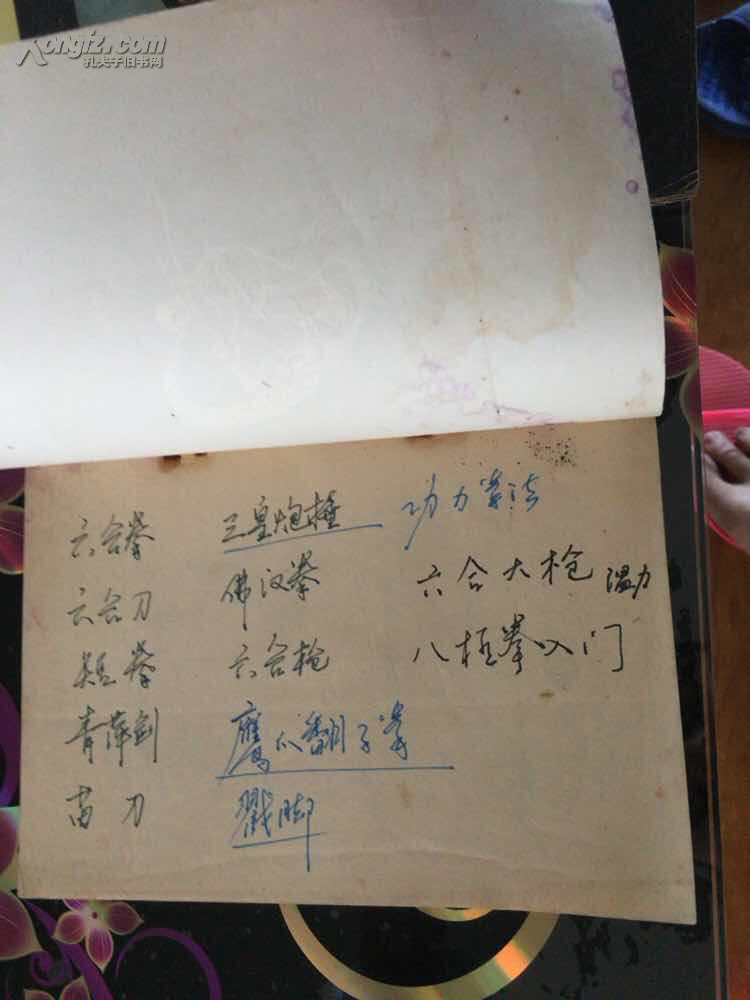 Kongfz.com
孔夫子旧书网
六合拳
六合刀
短拳
青萍剑
苗刀
三皇炮捶
佛汉拳
六合枪
鹰爪翻子拳
戳脚
功力拳法
六合大枪
八极拳入门